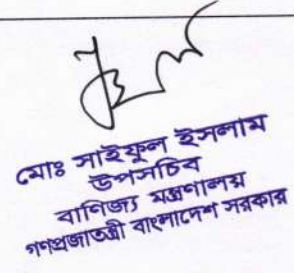 মোঃ সাইফুল ইসলাম
উপসচিব
বাণিজ্য মন্ত্রণালয়
গণপ্রজাতন্ত্রী বাংলাদেশ সরকার